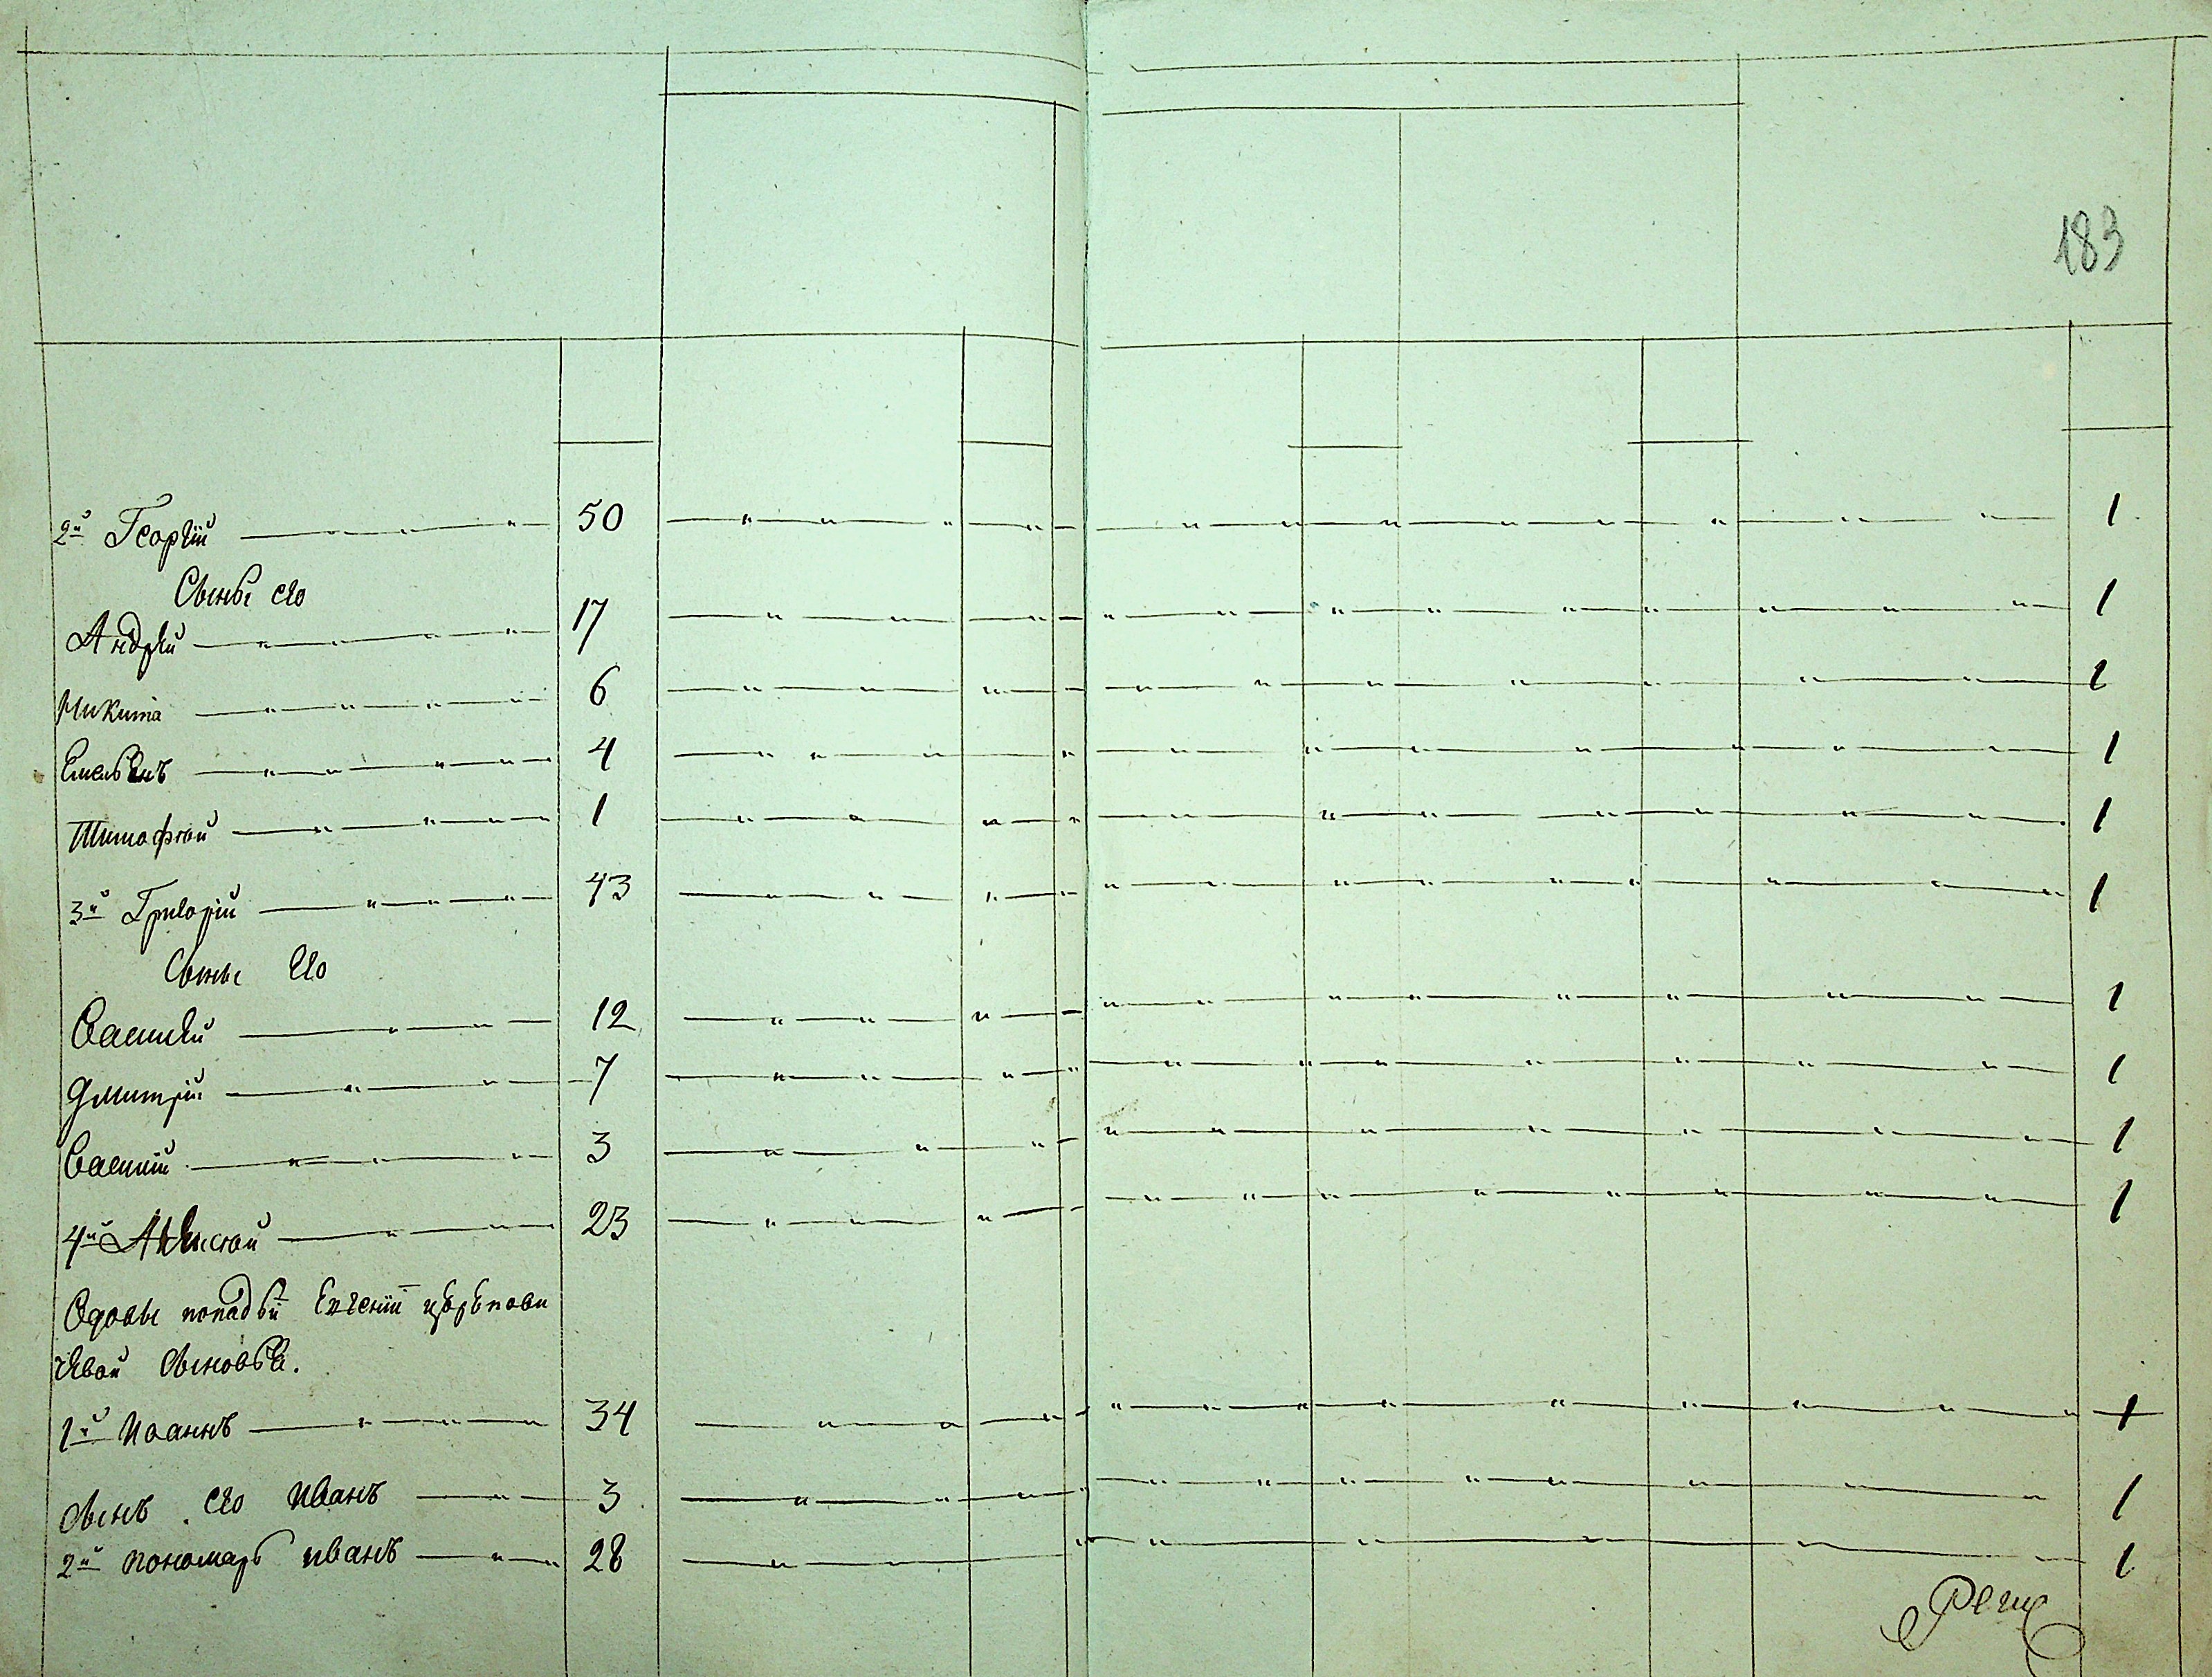 183
2й Георгий 50 1
Сыны его
Андрей 17 1
Никита 6 1
Емельянъ 4 1
Тимофей 1 1
3й Григорій 43 1
Сыны Его
Василей 12 1
Дмитрій 7 1
Василій 3 1
4й Алексей 23 1
Вдовы попадьи
сыновья.
1й Иоаннъ 34 1
сынъ его Иванъ 3 1
2й пономарь иванъ 28 1